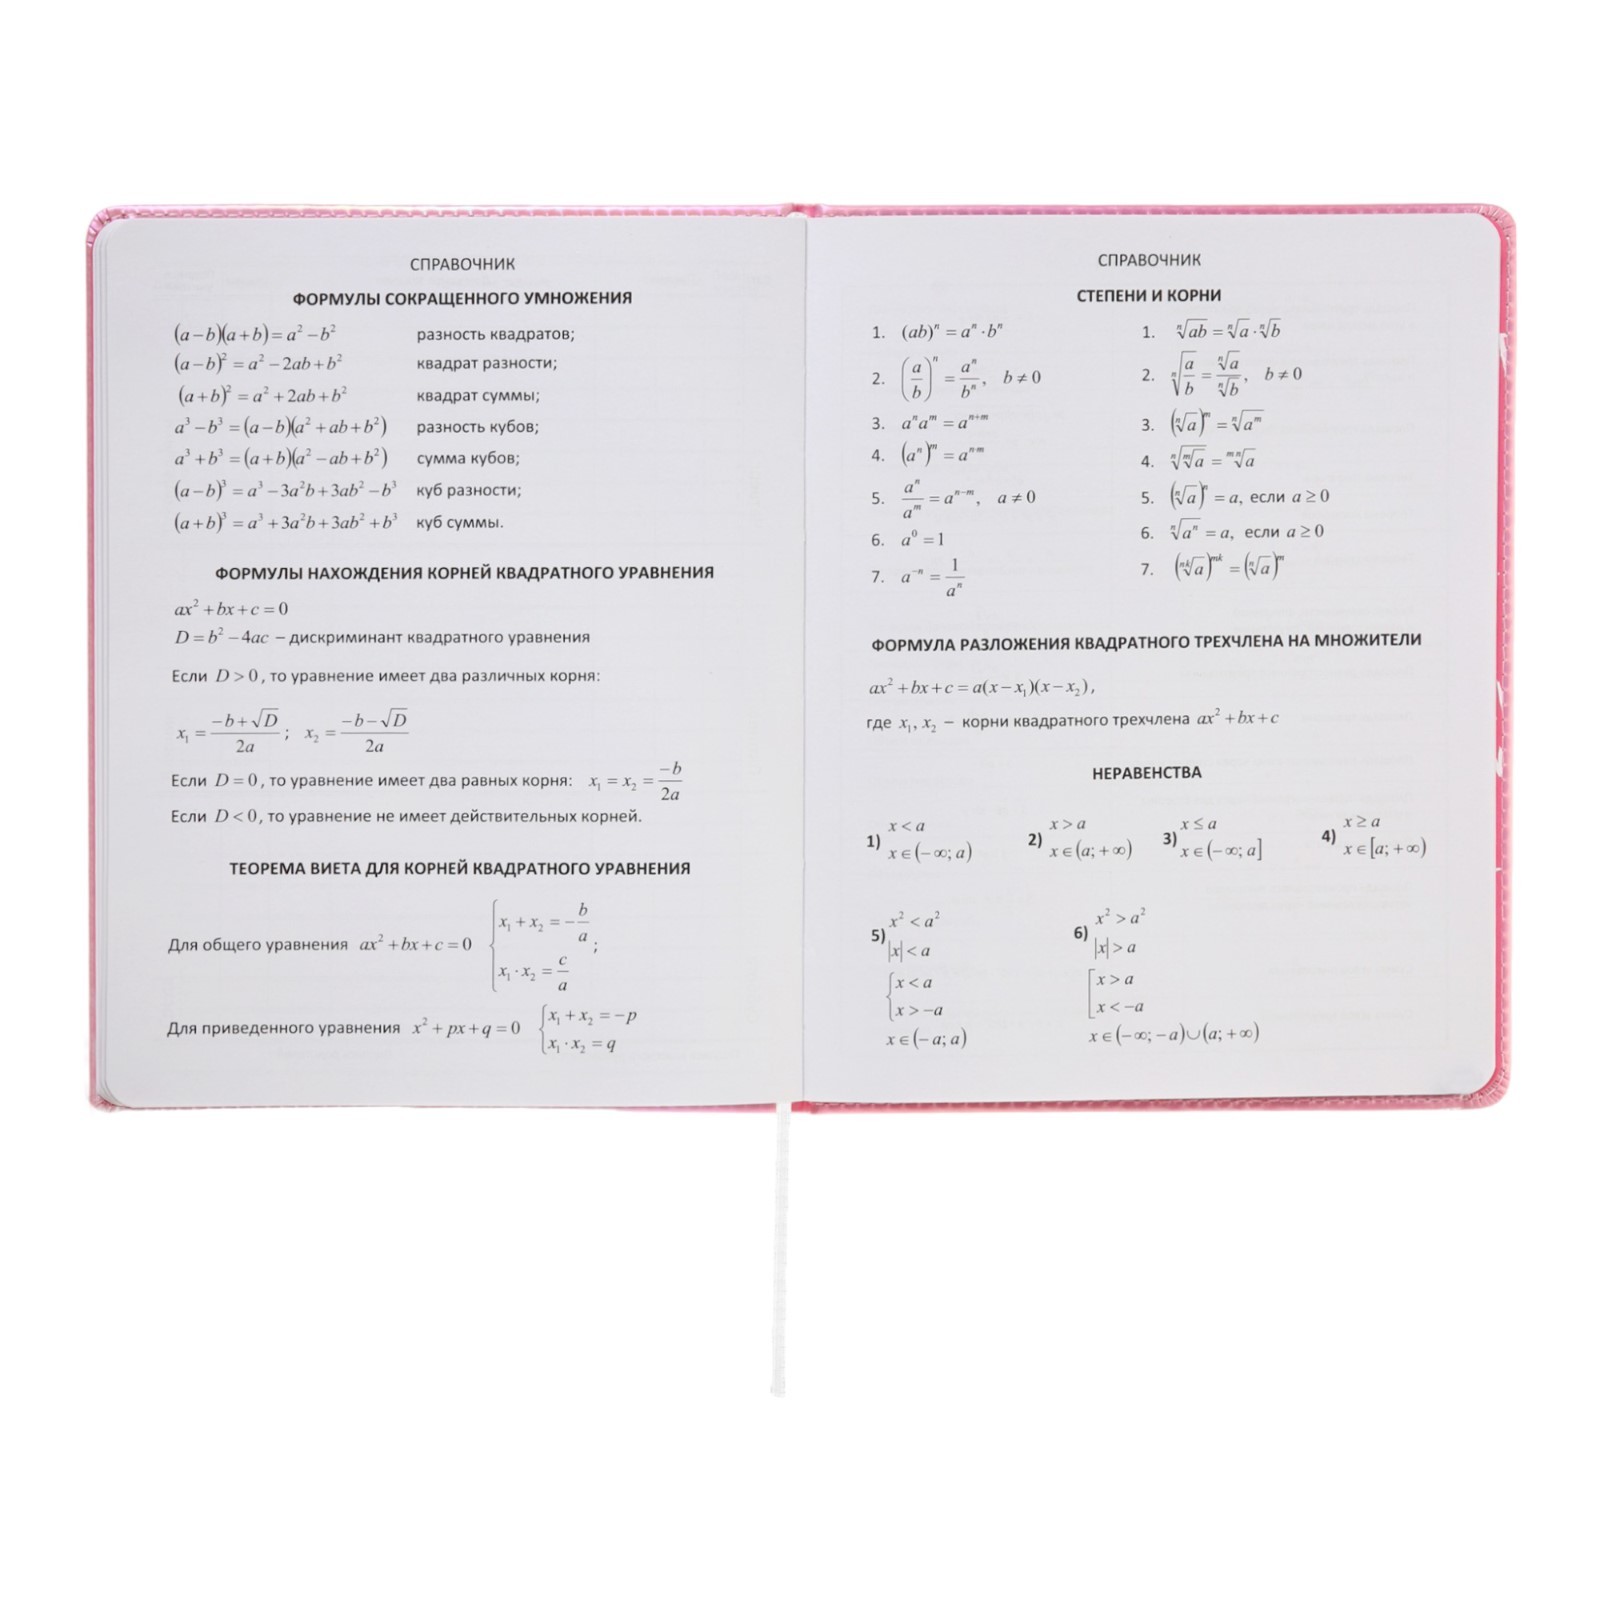 СПРАВОЧНИК
ФОРМУЛЫ СОКРАЩЕННОГО УМНОЖЕНИЯ
(a−b)(a+b)=a²−b² разность квадратов;
(a−b)²=a²−2ab+b² квадрат разности;
(a+b)²=a²+2ab+b² квадрат суммы;
a³−b³=(a−b)(a²+ab+b²) разность кубов;
a³+b³=(a+b)(a²−ab+b²) сумма кубов;
(a−b)³=a³−3a²b+3ab²−b³ куб разности;
(a+b)³=a³+3a²b+3ab²+b³ куб суммы.
ФОРМУЛЫ НАХОЖДЕНИЯ КОРНЕЙ КВАДРАТНОГО УРАВНЕНИЯ
ax²+bx+c=0
D=b²−4ac − дискриминант квадратного уравнения
Если D>0, то уравнение имеет два различных корня:
x₁=(−b+√D)/2a; x₂=(−b−√D)/2a
Если D=0, то уравнение имеет два равных корня: x₁=x₂=−b/2a
Если D<0, то уравнение не имеет действительных корней.
ТЕОРЕМА ВИЕТА ДЛЯ КОРНЕЙ КВАДРАТНОГО УРАВНЕНИЯ
Для общего уравнения ax²+bx+c=0 { x₁+x₂=−b/a
x₁·x₂=c/a ;
Для приведенного уравнения x²+px+q=0 { x₁+x₂=−p
x₁·x₂=q
СПРАВОЧНИК
СТЕПЕНИ И КОРНИ
1. (ab)ⁿ=aⁿ·bⁿ 1. ⁿ√ab=ⁿ√a·ⁿ√b
2. (a/b)ⁿ=aⁿ/bⁿ, b≠0 2. ⁿ√(a/b)=ⁿ√a/ⁿ√b, b≠0
3. aⁿaᵐ=aⁿ⁺ᵐ 3. (ⁿ√a)ᵐ=ⁿ√aᵐ
4. (aⁿ)ᵐ=aⁿᵐ 4. ⁿ√ᵐ√a=ᵐⁿ√a
5. aⁿ/aᵐ=aⁿ⁻ᵐ, a≠0 5. (ⁿ√a)ⁿ=a, если a≥0
6. a⁰=1 6. ⁿ√aⁿ=a, если a≥0
7. a⁻ⁿ=1/aⁿ 7. (ⁿᵏ√a)ᵐᵏ=(ⁿ√a)ᵐ
ФОРМУЛА РАЗЛОЖЕНИЯ КВАДРАТНОГО ТРЕХЧЛЕНА НА МНОЖИТЕЛИ
ax²+bx+c=a(x−x₁)(x−x₂),
где x₁,x₂ − корни квадратного трехчлена ax²+bx+c
НЕРАВЕНСТВА
1) x<a
x∈(−∞;a)
2) x>a
x∈(a;+∞)
3) x≤a
x∈(−∞;a]
4) x≥a
x∈[a;+∞)
5) x²<a²
|x|<a
{ x<a
x>−a
x∈(−a;a)
6) x²>a²
|x|>a
[ x>a
x<−a
x∈(−∞;−a)∪(a;+∞)